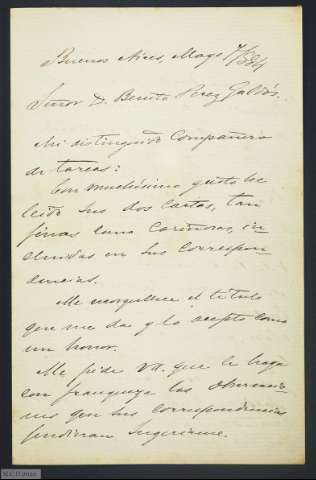 Buenos Aires, Mayo 7/884
Señor D. Benito Perez Galdós.
Mi distinguido Compañero
de tareas:
Con muchísimo gusto he
leído sus dos Cartas, tan
finas como Cariñosas, in
cluidas en sus Correspon
dencias.
Me enorgullece el título
que me da y lo acepto como
un honor.
Me pide Vd. que le haga
con franqueza las observacio
nes que sus correspondencias
pudieran sugerirme.